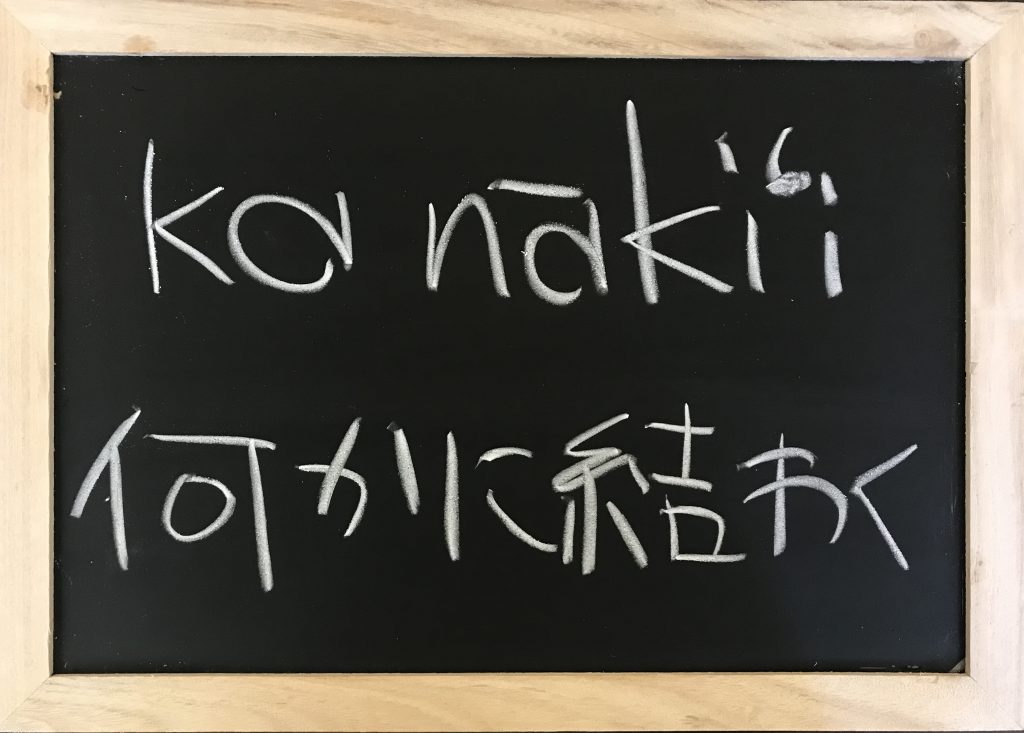 ka nākiʻi
何かに結わく